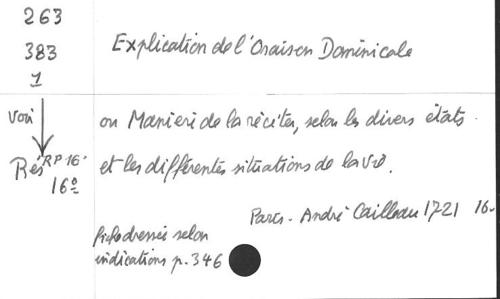 263
383
1
Explication de l'Oraison Dominicale
voir
Rés RP 16
16º
ou Manieri de la réciter, selon les divers états.
et les différentes situations de la vie.
Paris. André Cailleau 1721 16-
fiche dressée selon
indications p. 346